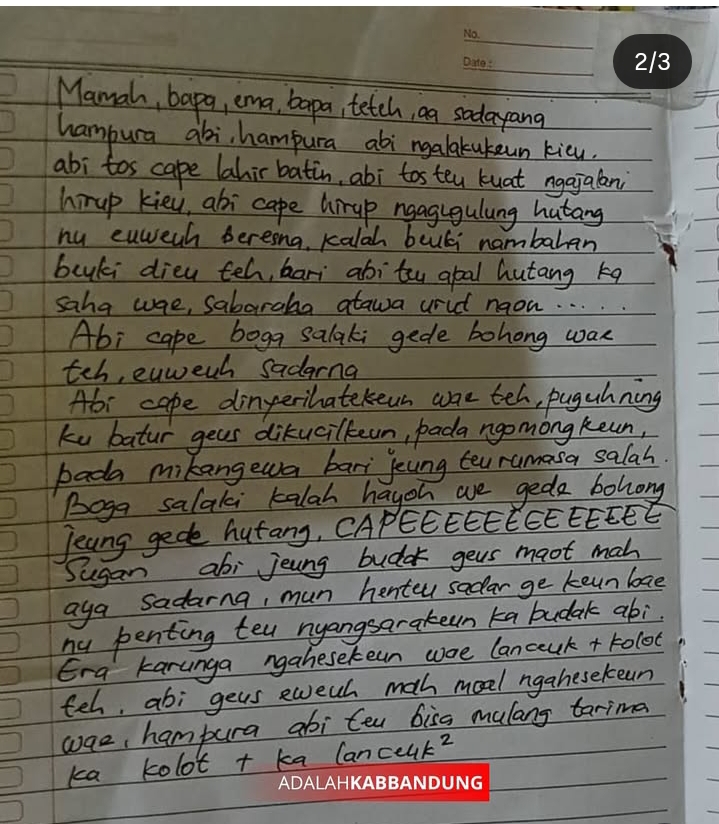 No.
Date:
2/3
Mamah, bapa, ema, bapa, teteh, aa sadayana
hampura abi, hampura abi ngalakukeun kieu.
abi tos cape lahir batin, abi tos teu kuat ngajalani
hirup kieu, abi cape hirup ngagugulung hutang
nu euweuh beresna, kalah beuki nambahan
beuki dieu teh, bari abi teu apal hutang ka
saha wae, sabaraha atawa urut naon ......
Abi cape boga salaki gede bohong wae
teh, euweuh sadarna
Abi cape dinyerihatekeun wae teh, puguhning
ku batur geus dikucilkeun, pada ngomongkeun,
pada mikangewa bari jeung teu rumasa salah.
Boga salaki kalah hayoh we gede bohong
jeung gede hutang, CAPEEEEEEEEEEEEEE
Sugan abi jeung budak geus maot mah
aya sadarna, mun henteu sadar ge keun bae
nu penting teu nyangsarakeun ka budak abi.
Era karunya ngahesekeun wae lanceuk + kolot
teh, abi geus eweuh mah moal ngahesekeun
wae, hampura abi teu bisa mulang tarima
ka kolot + ka lanceuk²
ADALAHKABBANDUNG